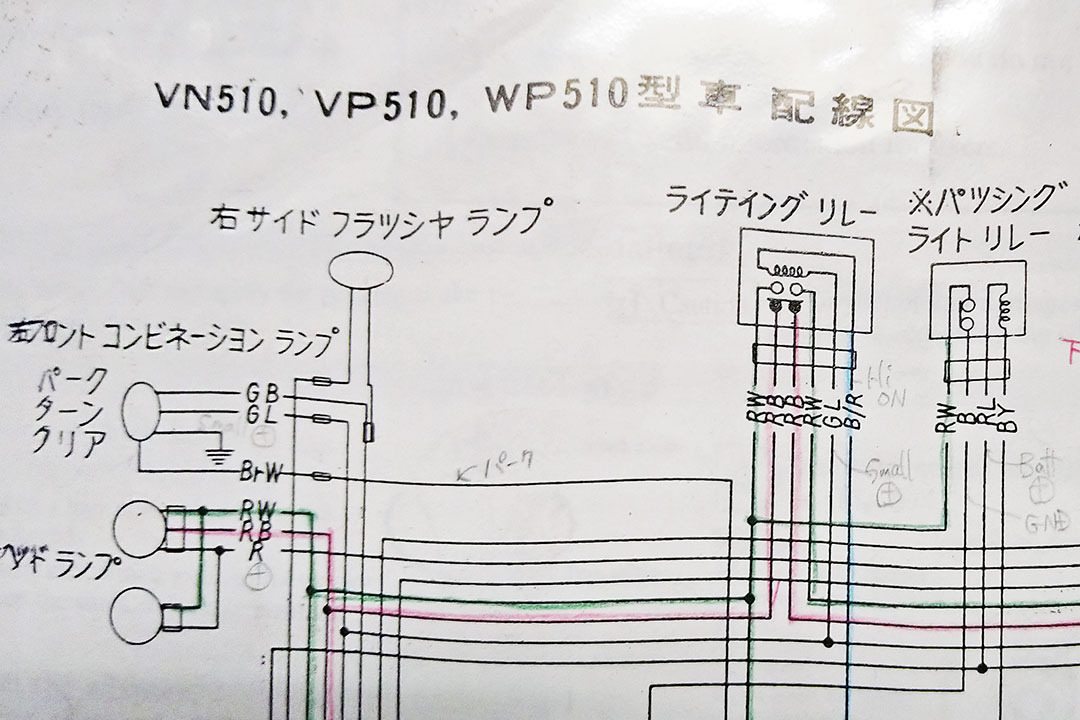 VN510, VP510, WP510型車 配線図
右サイド フラツシヤ ランプ
ライテイング リレー
※パツシング
ライト リレー
左フロント コンビネーション ランプ
パーク
ターン
クリア
GB
GL
Small ⊕
BrW
パーク
RW
RB
R
⊕
ヘッド ランプ
RW
RB
RB
RW
GL
B/R
Hi
ON
Small
⊕
RW
B
RL
BY
Batt
⊕
GND